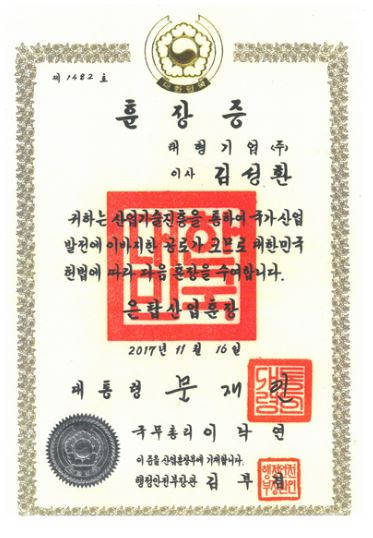 대한민국
제 1482 호
훈장증
태형기업(주)
이사 김성환
귀하는 산업기술진흥을 통하여 국가산업
발전에 이바지한 공로가 크므로 대한민국
헌법에 따라 다음 훈장을 수여합니다.
은탑산업훈장
2017년 11월 16일
대통령 문재인
국무총리 이낙연
이 증을 산업훈장부에 기재합니다.
행정안전부장관 김부겸